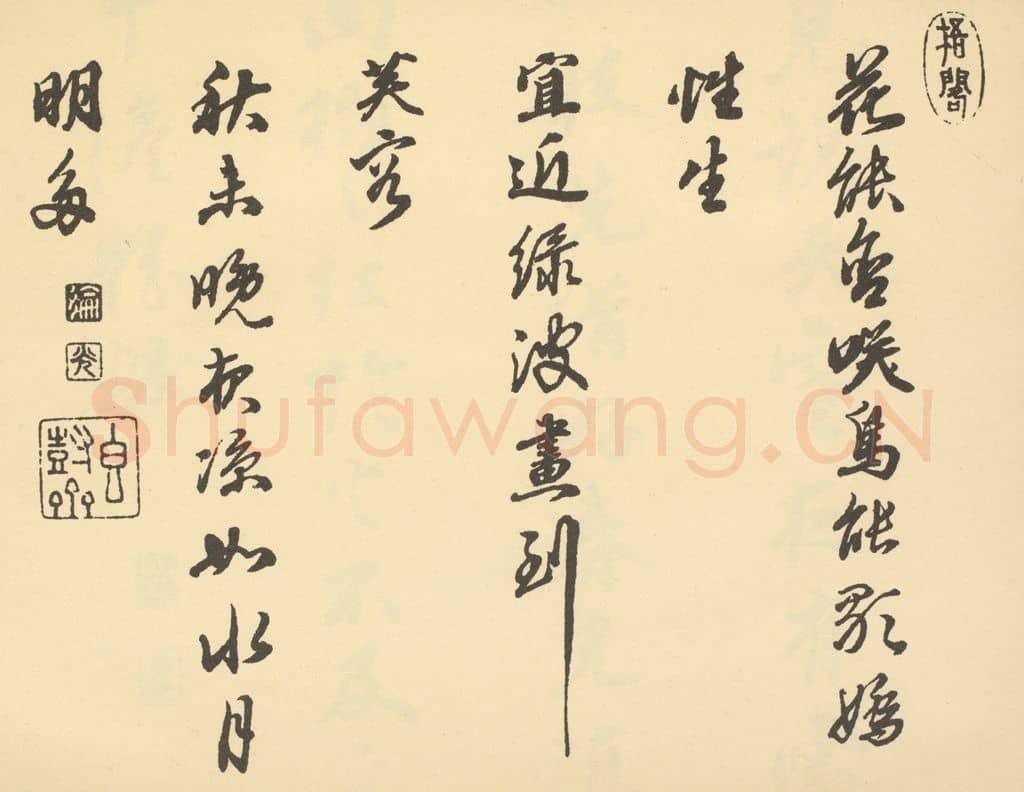 花能含咲鳥能歌嬌
性生
宜近綠波畫到
芙容
秋未晚夜涼如水月
明多
Shufawang.CN